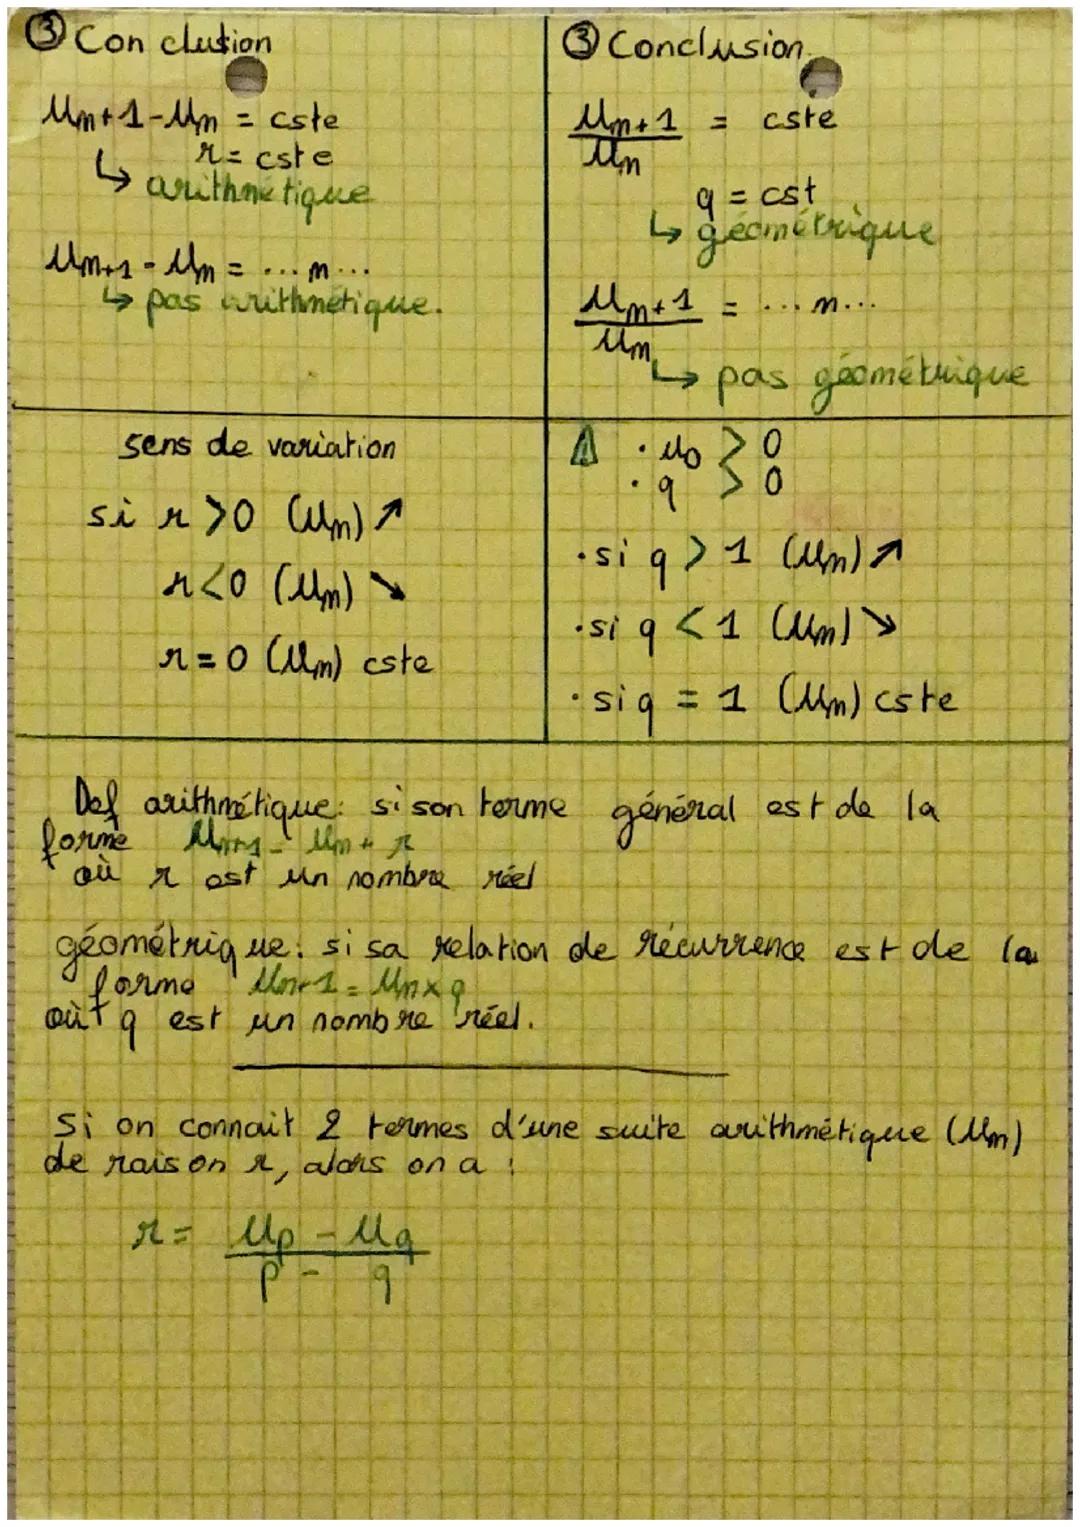 ③ Conclution
Un+1-Un = cste
r = cste
↳ arithmétique
Un+1 - Un = ... n ...
↳ pas arithmétique.
③ Conclusion
Un+1 / Un = cste
q = cst
↳ géométrique
Un+1 / Un = ... n ...
↳ pas géométrique
sens de variation
si r > 0 (Un) ↗
r < 0 (Un) ↘
r = 0 (Un) cste
⚠ • u0 > 0
• q > 0
• si q > 1 (Un) ↗
• si q < 1 (Un) ↘
• si q = 1 (Un) cste
Def arithmétique: si son terme général est de la
forme Un+1 = Un + r
où r est un nombre réel
géométrique: si sa relation de récurrence est de la
forme Un+1 = Un x q
où q est un nombre réel.
Si on connait 2 termes d'une suite arithmétique (Un)
de raison r, alors on a :
r = Up - Uq / p - q